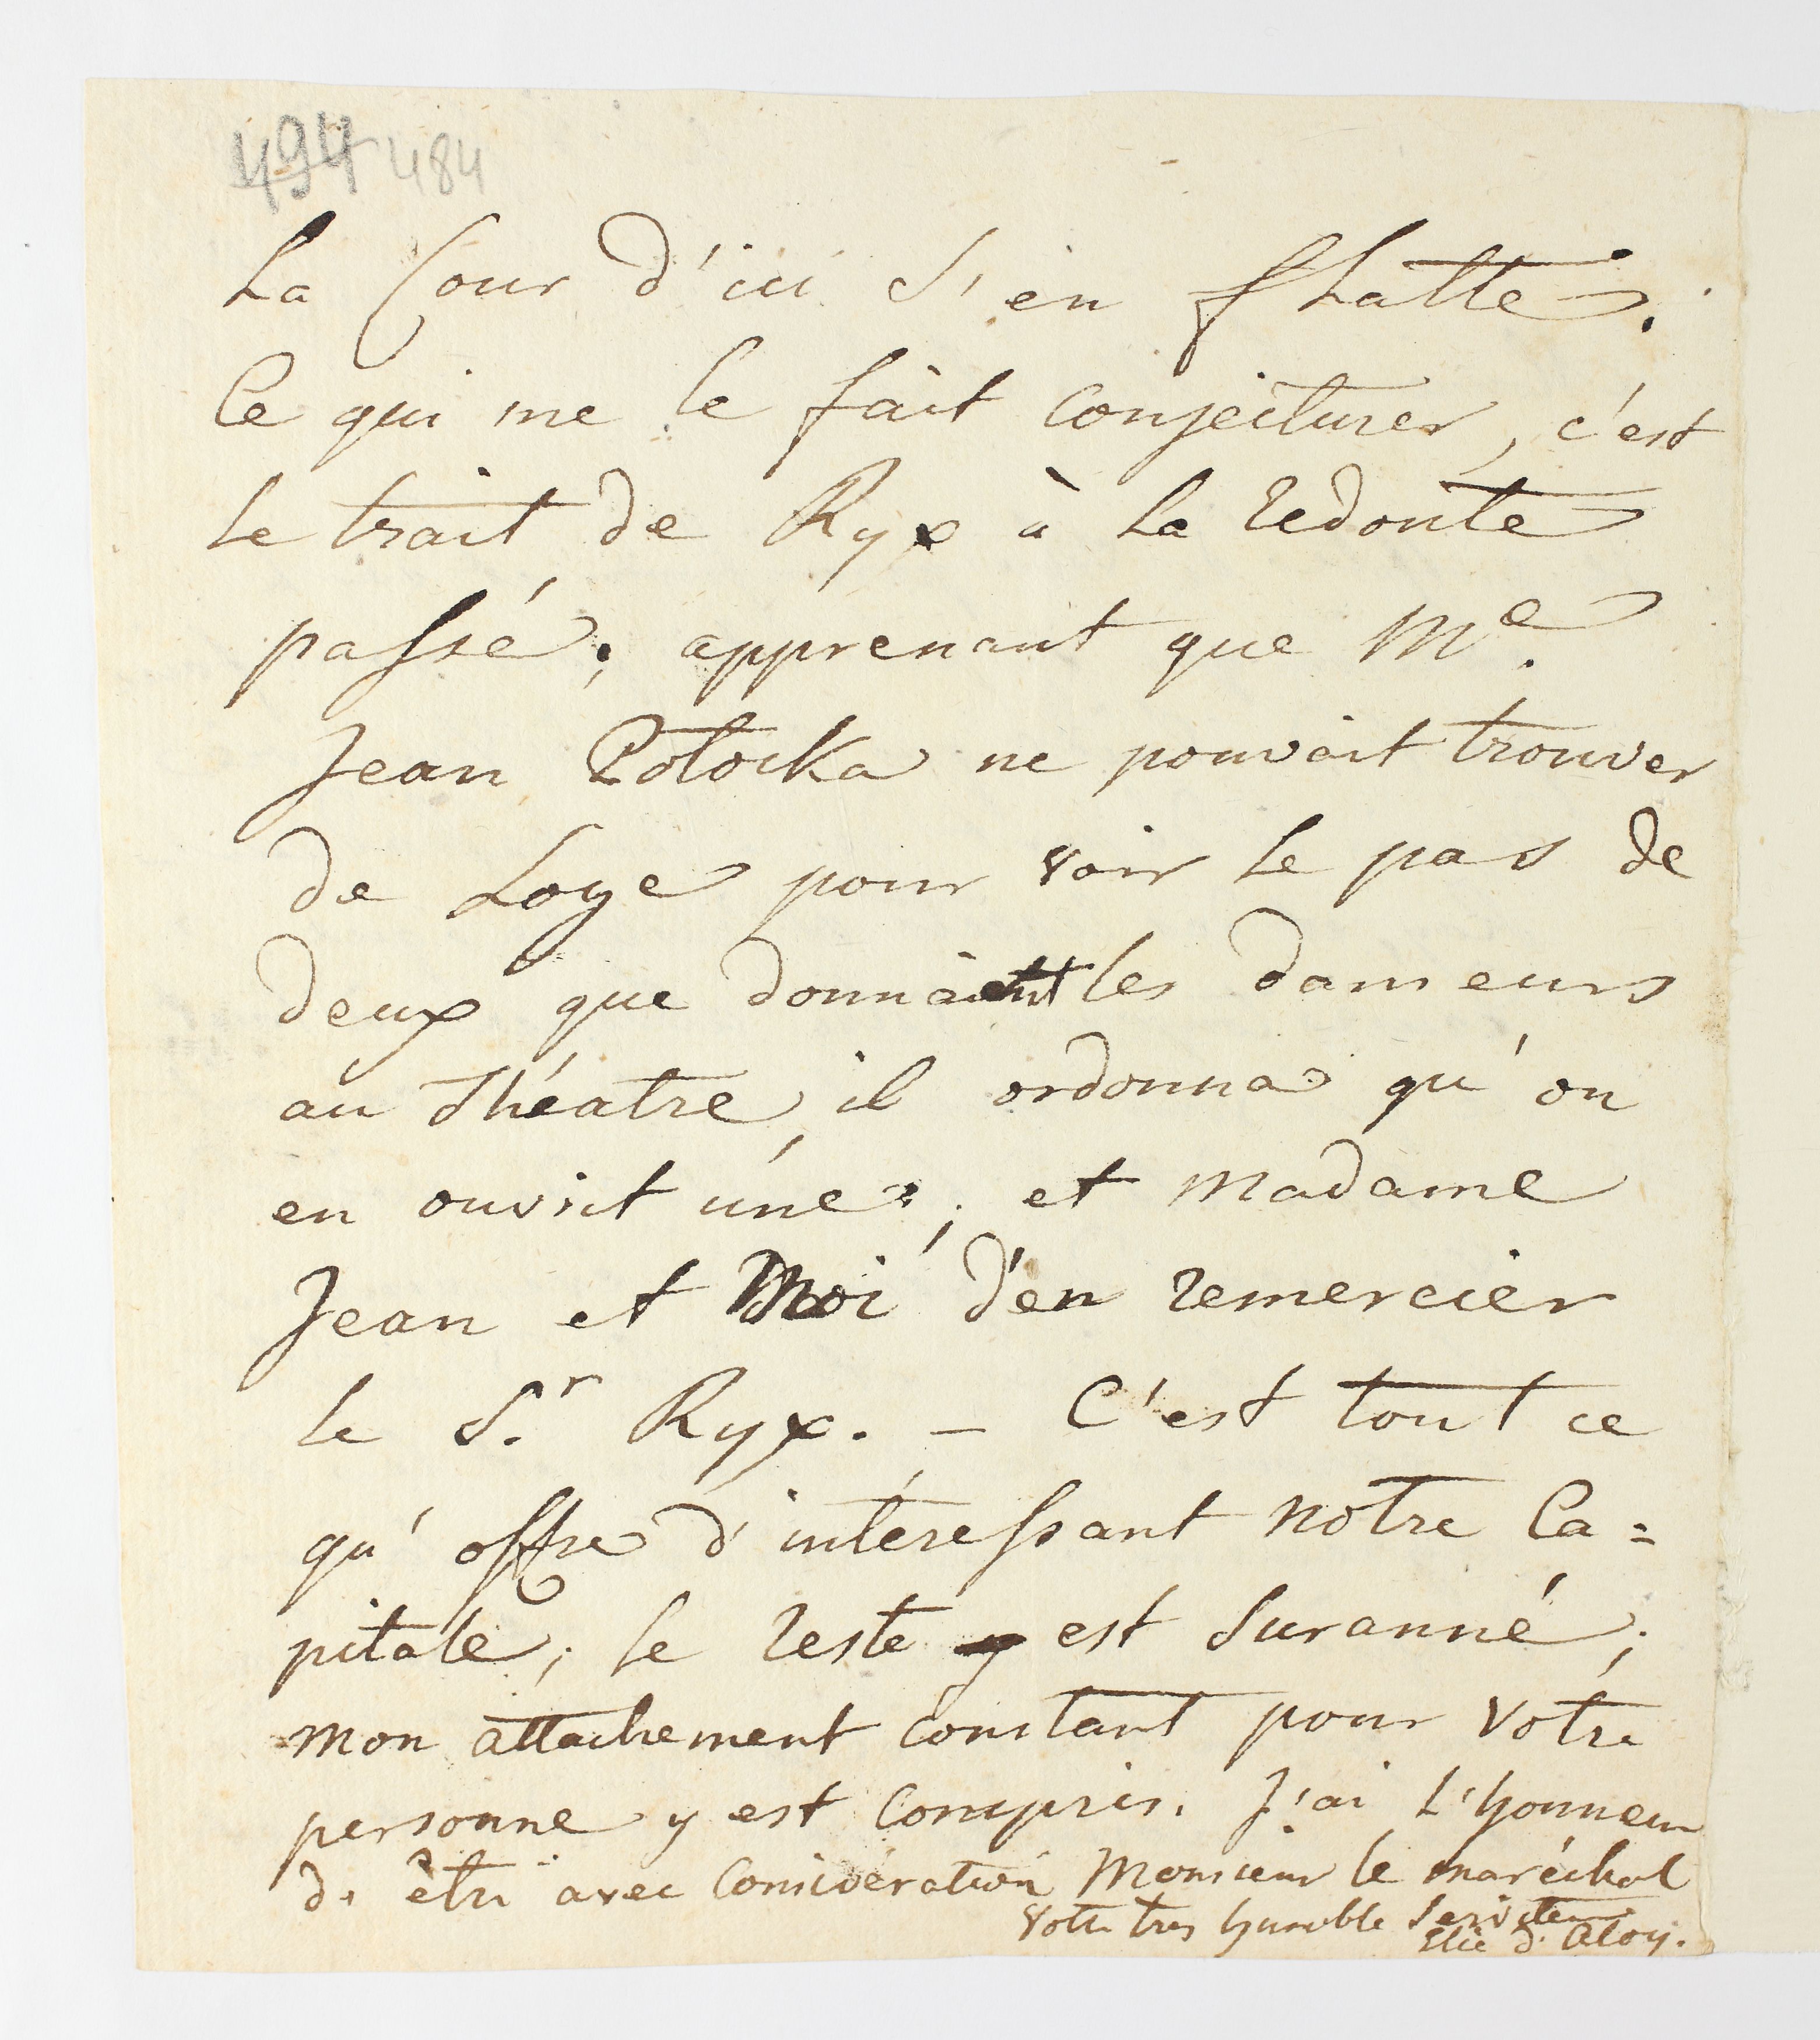 494 484
La Cour d'ici s'en flatte.
Ce qui me le fait conjecturer, c'est
le trait de Ryx à la redoute
passé; apprenant que Me.
Jean Potocka ne pouvait trouver
de Loge pour voir le pas de
deux que donnaient les danseurs
au Théatre, il ordonna qu'on
en ouvrit une; et Madame
Jean et Moi d'en remercier
le Sr. Ryx. — C'est tout ce
qu'offre d'intéressant notre Ca=
pitale; le reste y est suranné;
mon attachement constant pour votre
personne y est compris. J'ai l'honneur
d'être avec considération Monsieur le maréchal
Votre tres humble serviteur
Elie d'Aloy.